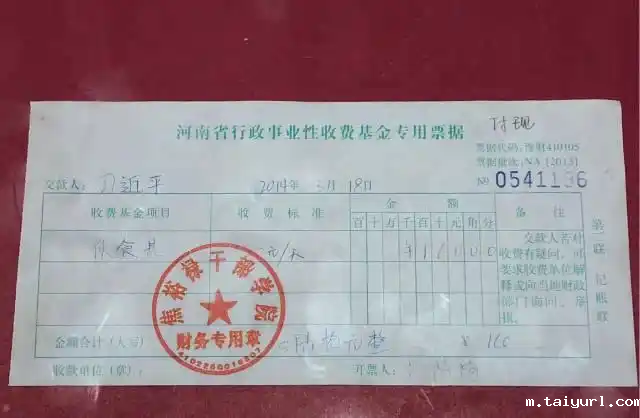 河南省行政事业性收费基金专用票据
付现
票据代码:豫财410105
票据批次:NA [2013]
交款人: 习近平
2014年 3月 18日
№ 0541196
收费基金项目 收费标准 金额 备注
百十万千百十元角分
伙食费 元/天
交款人若对
收费有疑问,可
要求收费单位解
释或向当地财政
部门询问、举
报。
第一联 记账联
焦裕禄干部学院
财务专用章
金额合计(大写) 陆拾元整 ¥ 160
收款单位(章): 开票人:
m.taiyurl.com